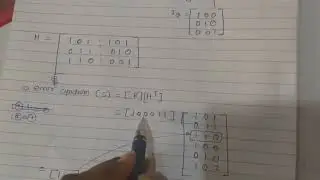 I3 = [1 0 0
0 1 0
0 0 1]
H = [1 0 1 : 1 0 1
0 1 1 : 0 1 0
1 1 0 : 0 0 1]
error syndrom (S) = [R][H^T]
= [1 0 0 0 1 1] [1 0 1
0 1 1
1 1 0
1 0 0
0 1 0
1 0 1]